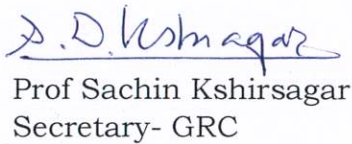 S. D. Kshirsagar
Prof Sachin Kshirsagar
Secretary- GRC